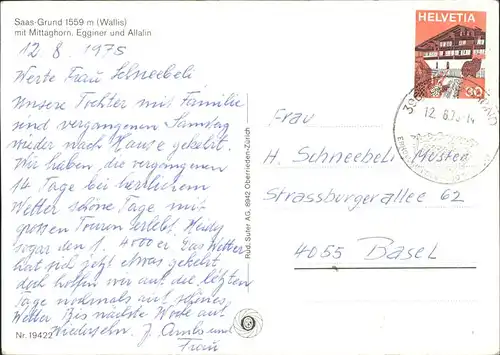 Saas-Grund 1559 m (Wallis)
mit Mittaghorn, Egginer und Allalin
12. 8. 1975
Werte Frau Schneebeli
Unsere Tochter mit Familie
sind vergangenen Samstag
wieder nach Hause gekehrt.
Wir haben die vergangenen
14 Tage bei herrlichem
Wetter schöne Tage mit
großen Touren erlebt. Heidy
sogar den 1. 4000er. Das Wetter
hat sich jetzt etwas gekehrt
doch hoffen wir auf die letzten
Tage nochmals auf schönes
Wetter. Bis nächste Woche auf
Wiedersehn. J. und
Frau
Nr. 19422
Rud. Suter AG, 8942 Oberrieden-Zürich
HELVETIA
30
12. 8. 75-14
Frau
H. Schneebeli-Muster
Strassburgerallee 62
4055 Basel